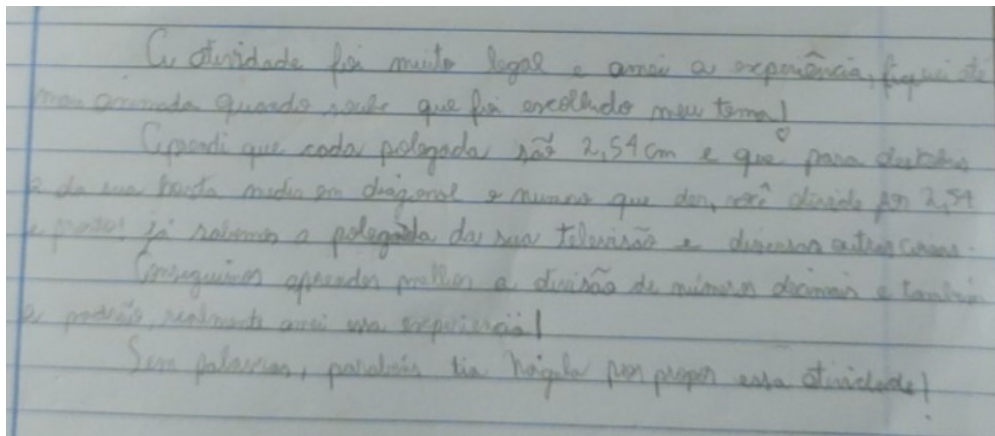 A atividade foi muito legal e amei a experiência, fiquei até
mais animada quando soube que foi escolhido meu tema!
Aprendi que cada polegada são 2,54 cm e que para descobrir
a da sua basta medir em diagonal o número que der, você divide por 2,54
e pronto! já sabemos a polegada da sua televisão e diversas outras coisas.
Conseguimos aprender melhor a divisão de números decimais e também
o padrão, realmente amei essa experiência!
Sem palavras, parabéns tia por propor essa atividade!